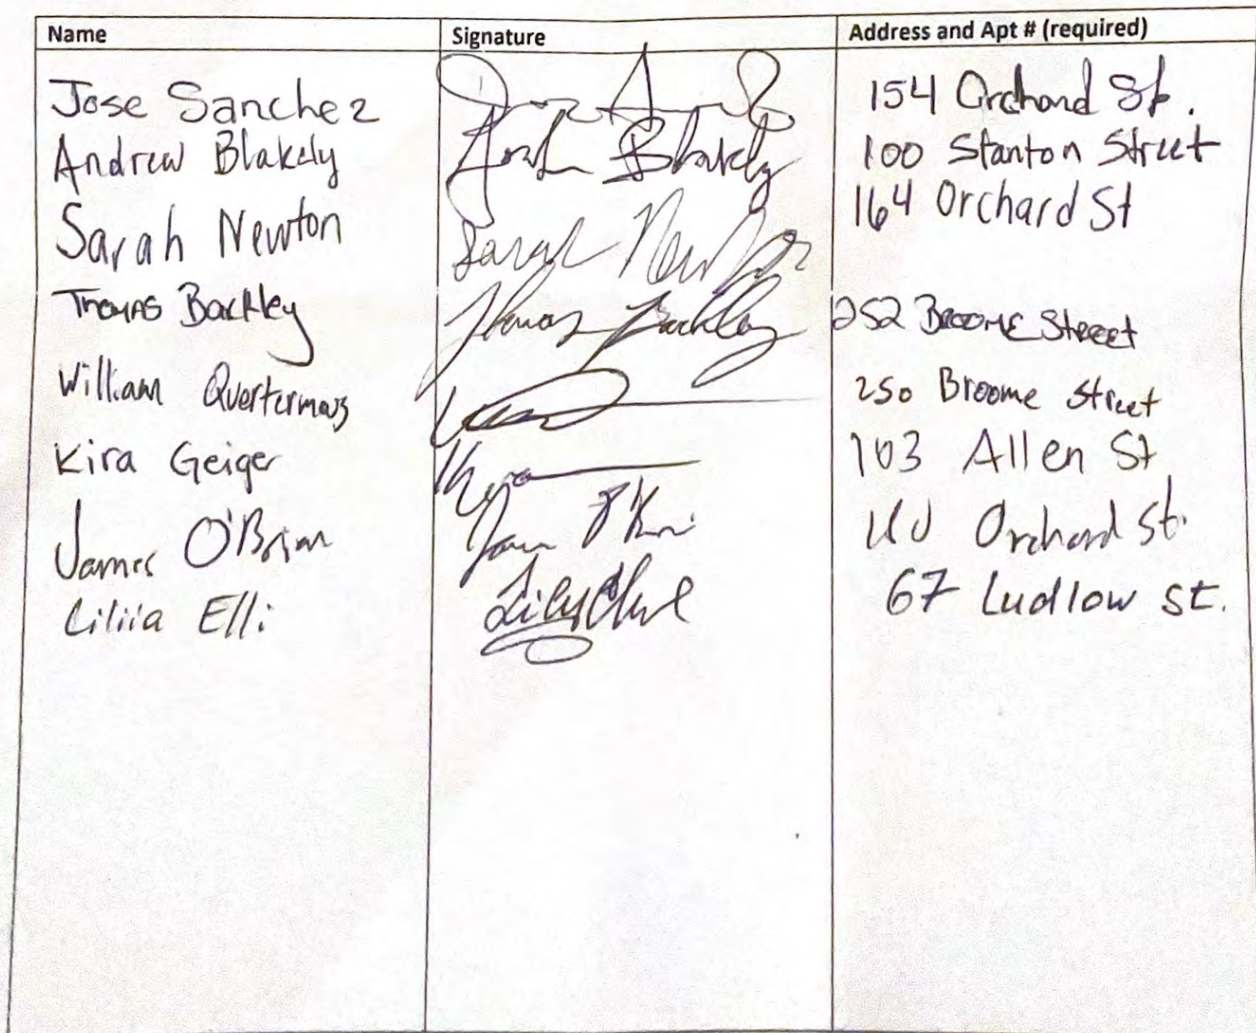 Name Signature Address and Apt # (required)
Jose Sanchez 154 Orchard St.
Andrew Blakely Blakely 100 Stanton Street
Sarah Newton Sarah Newton 164 Orchard St
Thomas Barkley Thomas Barkley 252 Broome Street
William Quertermous 250 Broome Street
Kira Geiger 103 Allen St
James O'Brian Orchard St.
Liliia Elli 67 Ludlow St.